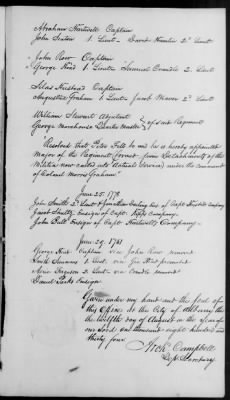 Abraham Hartwell Captain
John Seaton 1. Lieut - David Hunter 2d Lieut
John Row Captain
George Head 1. Lieut Samuel Crandle 2. Lieut
Silas Husted Captain
Augustus Graham 1 Lieut Jacob Weaver 2d Lieut
William Stewart Adjutant
George Morehouse Quarter Master of said Regiment
"Resolved that Peter Fell be and he is hereby appointed
Major of the Regiment formed from Detachments of the
Militia now called into actual Service under the command
of Colonel Morris Graham"
June 25. 1778
John Smith 2d Lieut of Capt
Jacob Ensign of Capt Company
John Bull Ensign of Capt Hartwells Company
June 29. 1781
George Head Captain vice John Row moved
1 Lieut vice Geo Head promoted
2 Lieut vice Crandle moved
Daniel Ensign
Given under my hand and the seal of
this Office at the City of Albany this
the twelfth day of August in the year of
our Lord one thousand eight hundred and
thirty four
Archd Campbell
Dep. Secretary